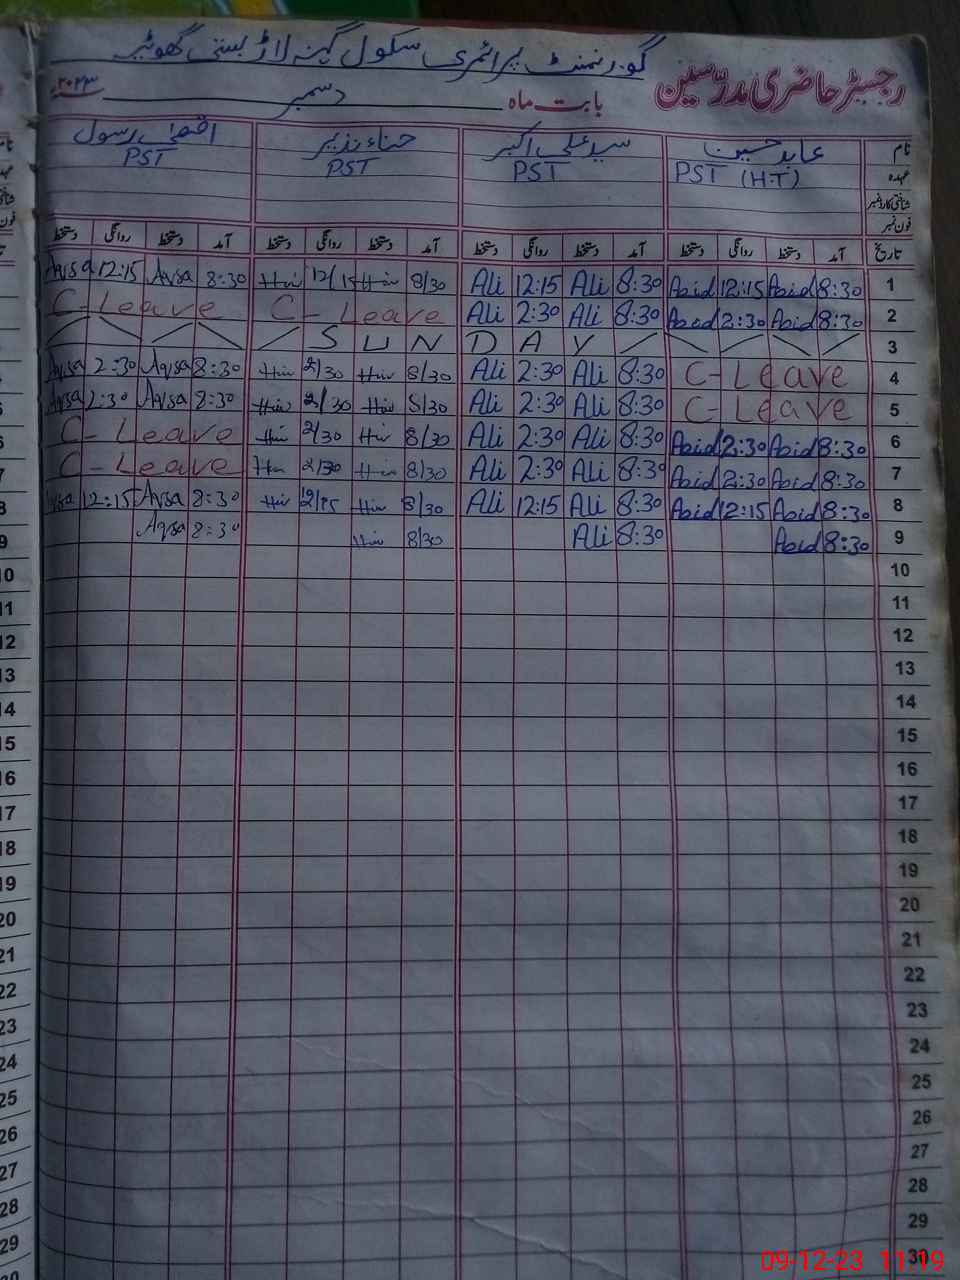 گورنمنٹ پرائمری سکول گہنہ لاڑ بستی گھوٹیہ
رجسٹر حاضری مدرسین بابت ماہ دسمبر ۲۰۲۳
نام عابد حسین سید علی اکبر حناء نذیر اقصیٰ رسول
عہدہ PST (H.T) PST PST PST
شناختی کارڈ نمبر
فون نمبر
تاریخ آمد دستخط روانگی دستخط آمد دستخط روانگی دستخط آمد دستخط روانگی دستخط آمد دستخط روانگی دستخط
Aqsa 12:15 Aqsa 8:30 Hin 12/15 Hin 8/30 Ali 12:15 Ali 8:30 Abid 12:15 Abid 8:30 1
C-Leave C-Leave Ali 2:30 Ali 8:30 Abid 2:30 Abid 8:30 2
SUNDAY 3
Aqsa 2:30 Aqsa 8:30 Hin 2/30 Hin 8/30 Ali 2:30 Ali 8:30 C-Leave 4
Aqsa 2:30 Aqsa 8:30 Hin 2/30 Hin 8/30 Ali 2:30 Ali 8:30 C-Leave 5
C-Leave Hin 2/30 Hin 8/30 Ali 2:30 Ali 8:30 Abid 2:30 Abid 8:30 6
C-Leave Hin 2/30 Hin 8/30 Ali 2:30 Ali 8:30 Abid 2:30 Abid 8:30 7
Aqsa 12:15 Aqsa 8:30 Hin 12/15 Hin 8/30 Ali 12:15 Ali 8:30 Abid 12:15 Abid 8:30 8
Aqsa 8:30 Hin 8/30 Ali 8:30 Abid 8:30 9
10
11
12
13
14
15
16
17
18
19
20
21
22
23
24
25
26
27
28
29
30
09-12-23 11:19